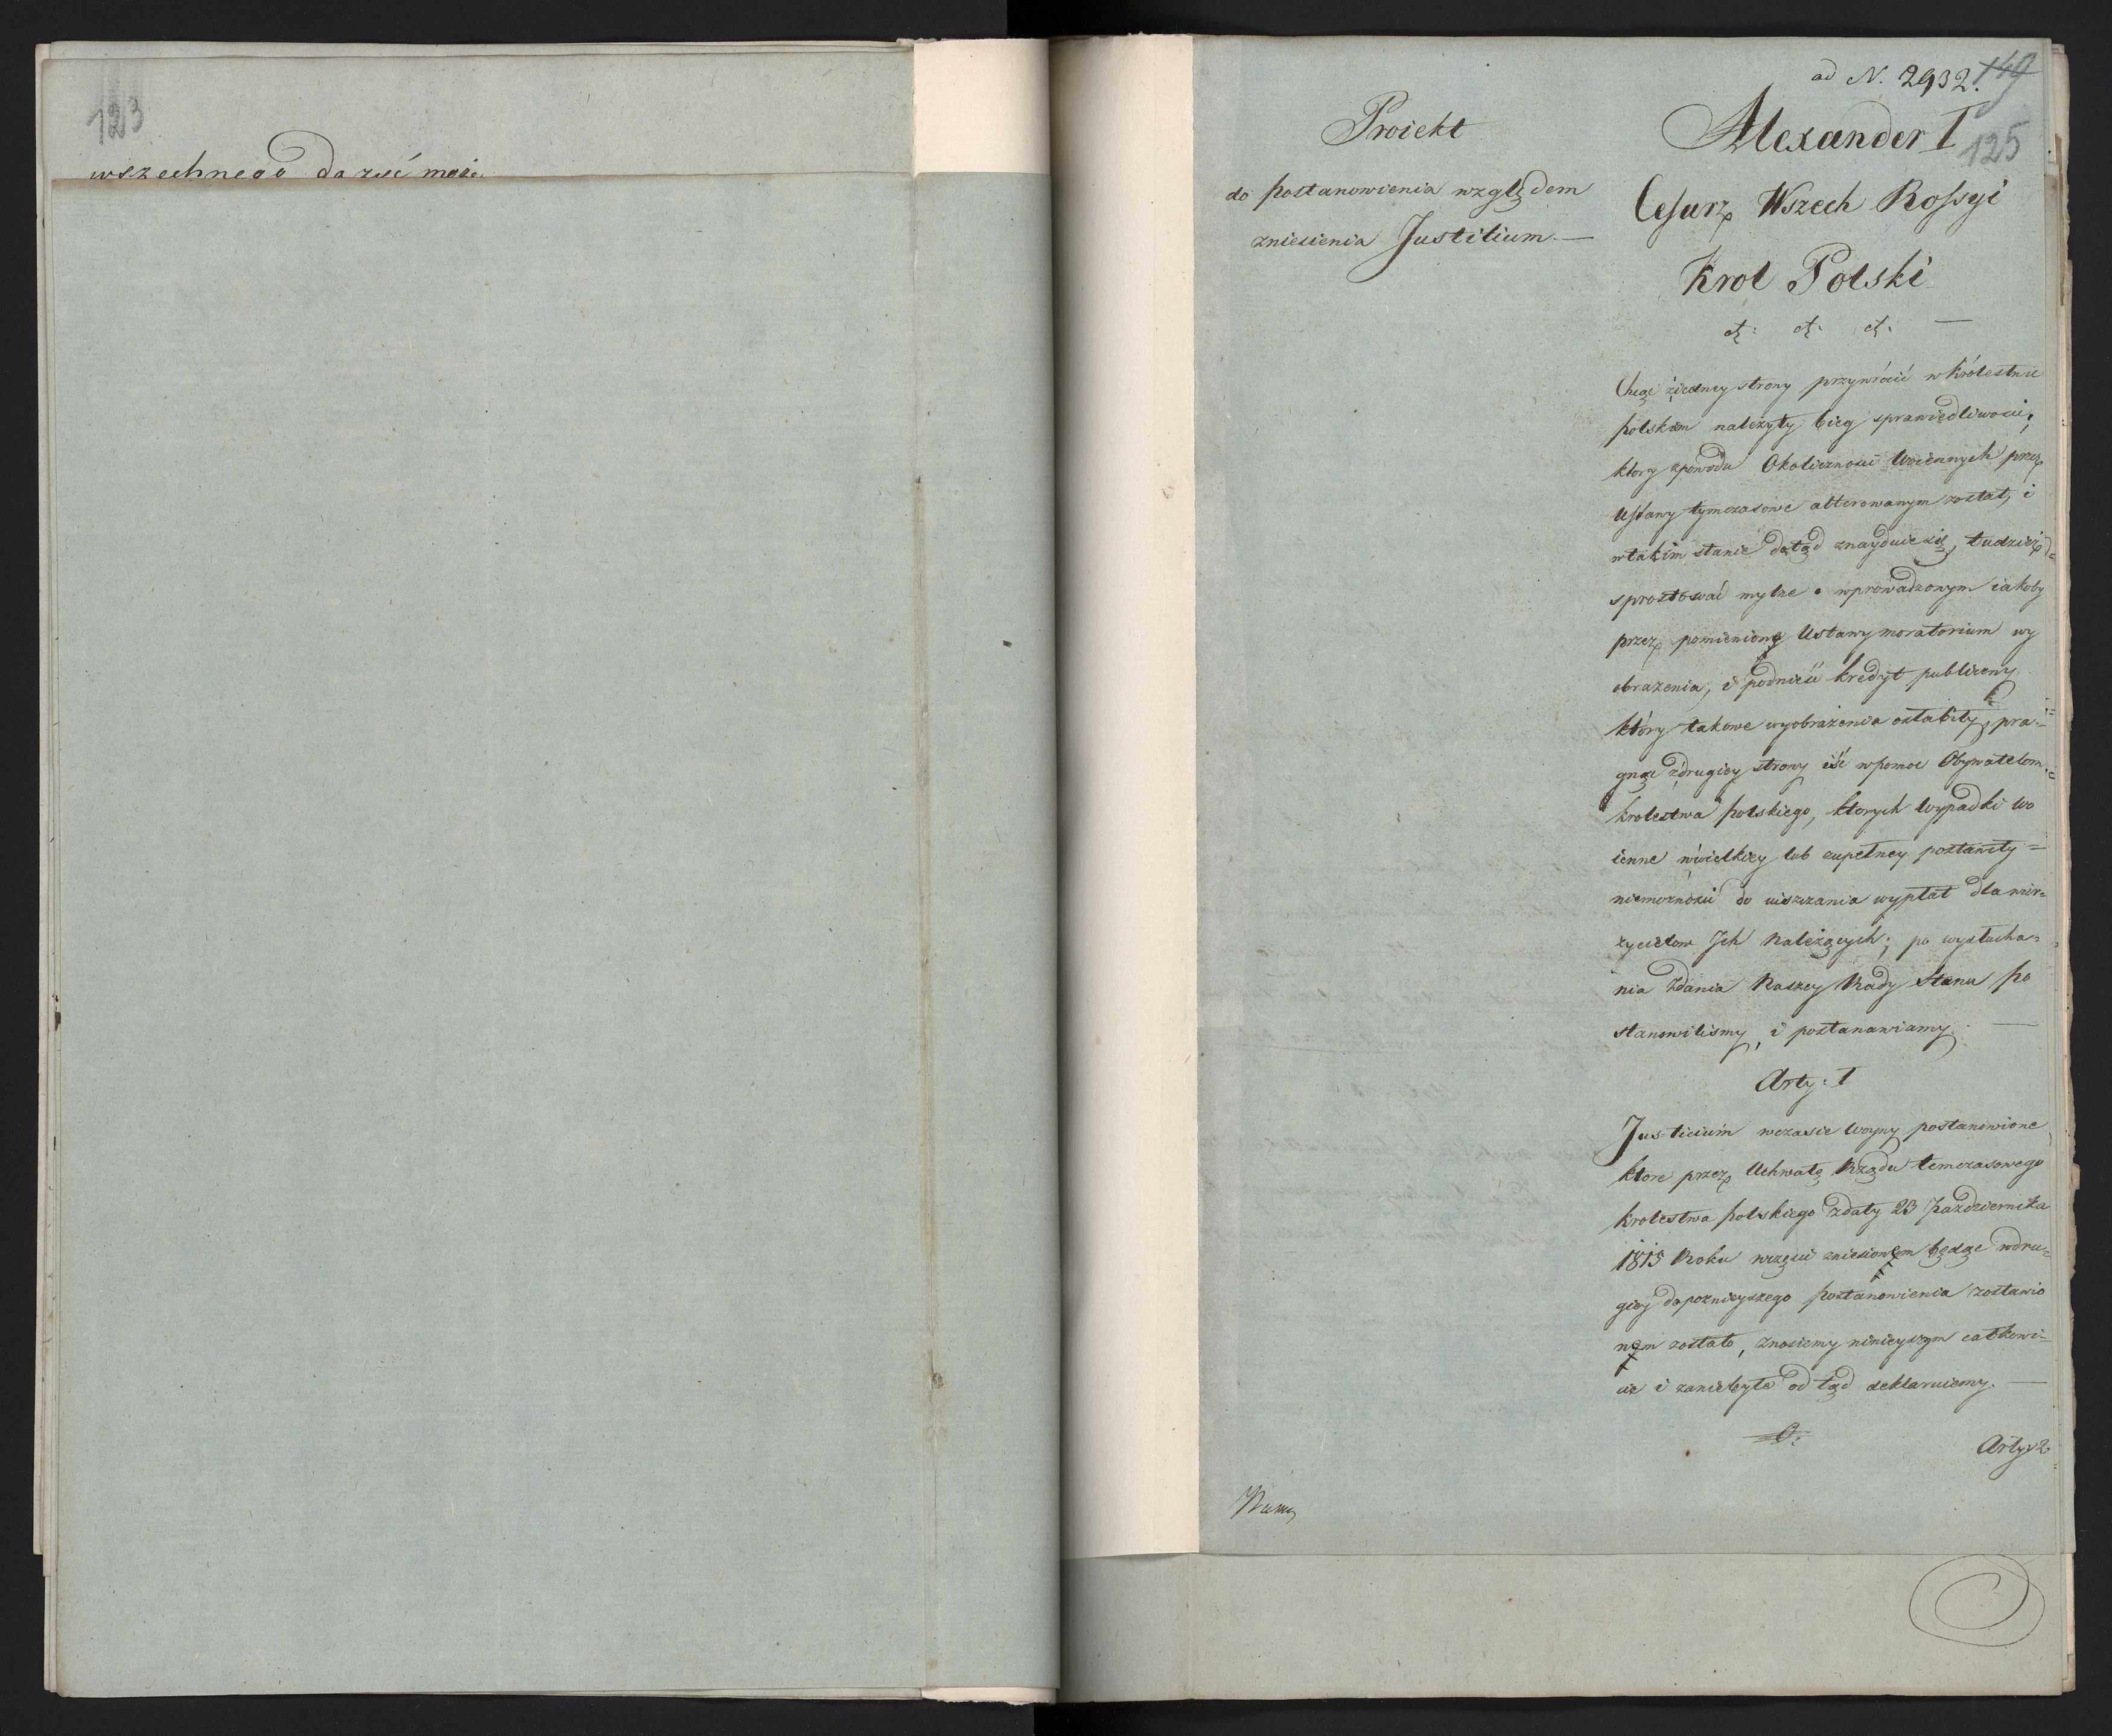 123
wszechnego da
ad N. 2932.
149
125
Proiekt
do postanowienia względem
zniesienia Justitium. —
Alexander I
Cesarz Wszech Rossyi
Krol Polski
etc: etc: etc. —
Chcąc ziedney strony przywrócić w Królestwie
polskiem należyty bieg sprawiedliwosci,
ktory zpowodu Okolicznosci Woiennych przez
Ustawy tymczasowe alterowanym został, i
wtakim stanie dotąd znayduie się, tudzież
sprostować mylne o wprowadzonym iakoby
przez pomienione Ustawy moratorium wy
obrażenia, i podnieść kredyt publiczny
który takowe wyobrażenia osłabiły, pra-
gnąc zdrugiey strony iść wpomoc Obywatelom
krolestwa polskiego, ktorych wypadki wo
ienne wwielkiey lub zupełney postawiły
niemożności do uiszczania wypłat dla wie-
rzycielow Ich należących; po wysłucha-
nia Zdania Naszey Rady Stanu po
stanowilismy, i postanawiamy. —
Arty: I
Jus-ticium wczasie woyny postanowione
ktore przez Uchwałę Rządu temczasowego
krolestwa polskiego zdaty 23 Pazdziernika
1815 Roku wczęści zniesionem będąc wdru-
giey dopoznieyszego postanowienia zostawio
nem zostało, znosiemy ninieyszym całkowi-
cie i zaniebyłe od tąd deklaruiemy. —
Arty: 2